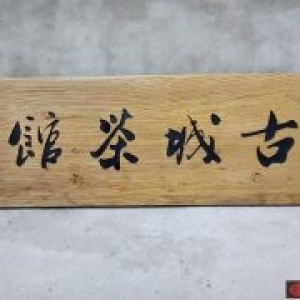 古城茶館